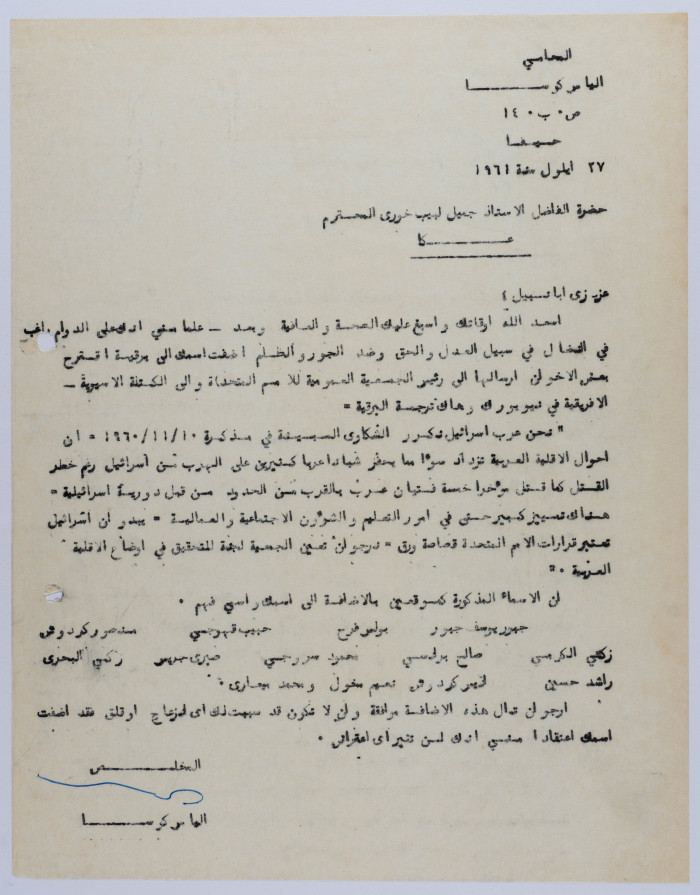 المحامي
الياس كوســـــا
ص ٠ ب ٠ ١٤٠
حيفـا
٢٧ ايلول سنة ١٩٦١
حضرة الفاضل الاستاذ جميل لبيب خوري المحترم
عــــــكا
عزيزي ابا سهيل ؛
اسعد الله اوقاتك واسبغ عليك الصحة والعافية وبعد – علما مني انك على الدوام راغب
في النضال في سبيل العدل والحق وضد الجور والظلم اضفت اسمك الى برقية اقترح
بعض الاخوان ارسالها الى رئيس الجمعية العمومية للامم المتحدة والى الكتلة الاسيوية –
الافريقية في نيويورك وهاك ترجمة البرقية =
" نحن عرب اسرائيل نكرر الشكاوى المبينة في مذكرة ١٩٦٠/١١/١٠ = ان
احوال الاقلية العربية تزداد سوءا مما يحفز شبانا عربا كثيرين على الهرب من اسرائيل رغم خطر
القتل كما قتل مؤخرا خمسة فتيان عرب بالقرب من الحدود من قبل دورية اسرائيلية =
هناك تمييز كبير حتى في امور التعليم والشؤون الاجتماعية والعمالية = يبدو ان اسرائيل
تعتبر قرارات الامم المتحدة قصاصة ورق = نرجو ان تعين الجمعية لجنة للتحقيق في اوضاع الاقلية
العربية ٠"
ان الاسماء المذكورة كموقعين بالاضافة الى اسمك واسمي فهم ٠
جبور يوسف جبور بولس فرح حبيب قهوجي منصور كردوش
زكي الكرمي صالح برانسي محمود سروجي صبري جريس زكي البحري
راشد حسين كردوش نعيم مخول ومحمد ميعاري ٠
ارجو ان تنال هذه الاضافة موافقة وان لا تكون قد سببت لك اى انزعاج او قلق فقد اضفت
اسمك اعتقادا منـي انك لـن تثير اى اعتراض ٠
المخلـــص
الياس كوســـــا